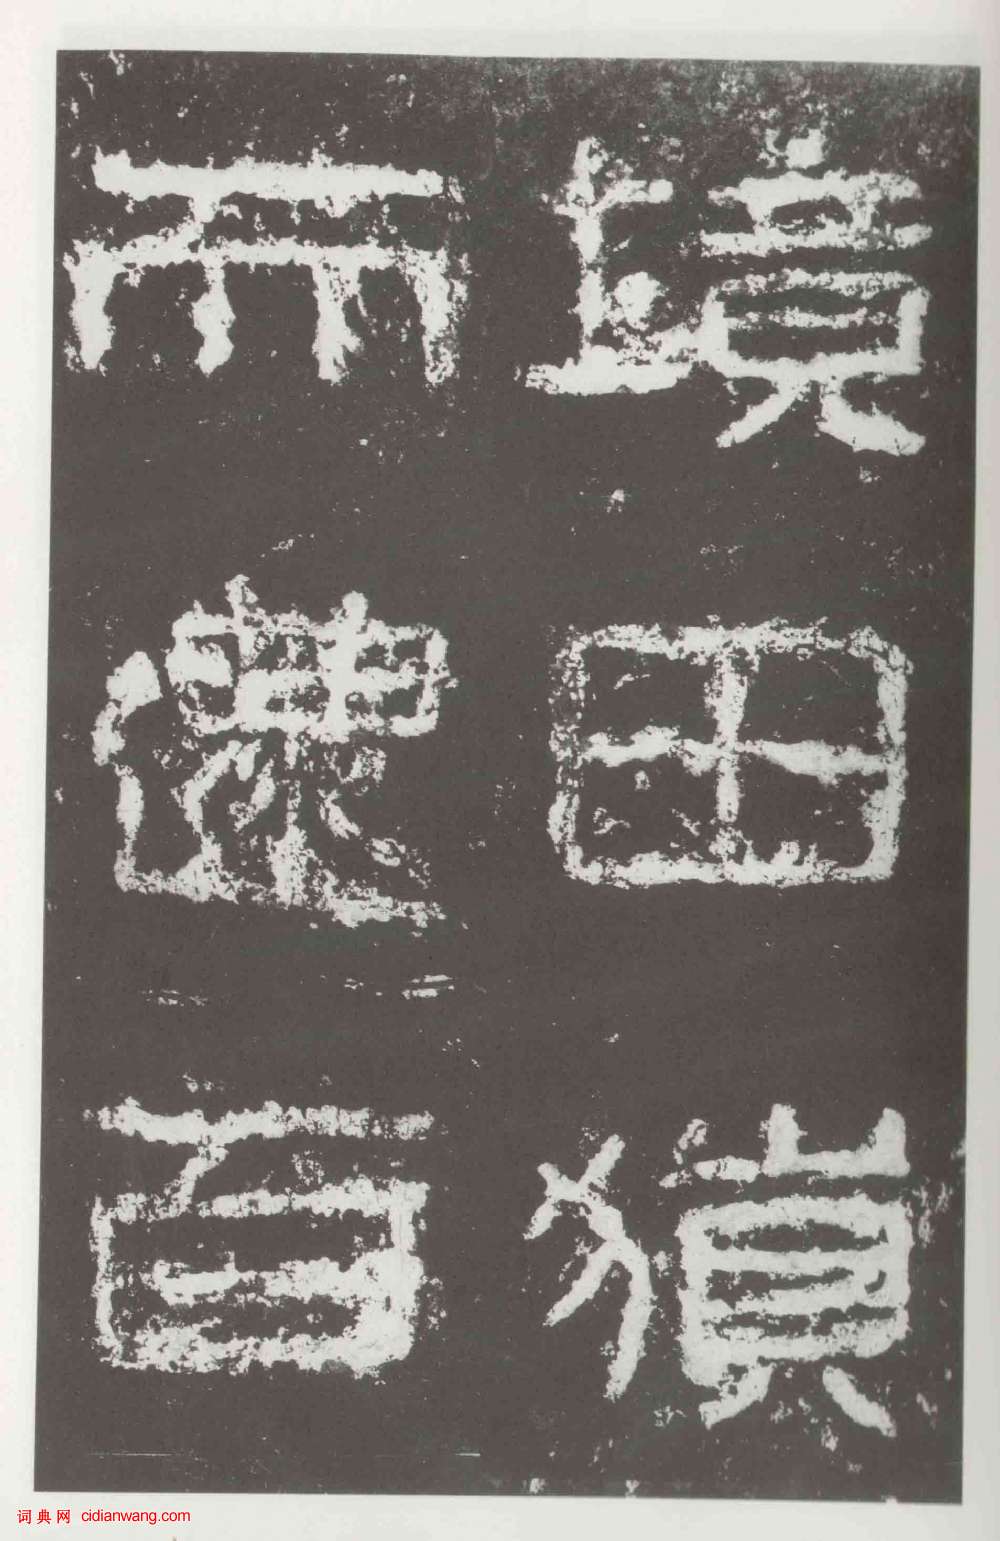 境田
而百
词典网 cidianwang.com